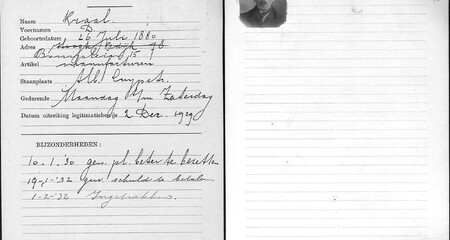 Naam Kraal
Voornamen D.
Geboortedatum 26 Juli 1880
Adres 48
15 I
Artikel Manufacturen
Staanplaats Alb. Cuypstr.
Gedurende Maandag t/m Zaterdag
Datum uitreiking legitimatiebewijs 2 Dec. 1929
BIJZONDERHEDEN:
10-1-30 gew. pl. beter te bezetten
19-1-'32 gew. schuld te betalen
1-2-'32 Ingetrokken.